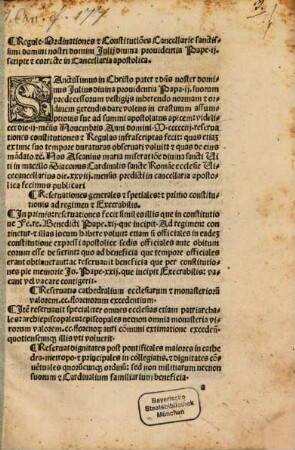 ¶ Regule Ordinationes ⁊ Constitutiões Cancellarie sanctis-
simi domini nostri domini Julij diuina prouidentia Pape .ij.
scripte ⁊ correcte in Cancellaria apostolica.
SAnctissimus in Christo pater ⁊ dñs noster domi
nus Julius diuina prouidentia Papa .ij. suorum
predecessorum vestigijs inherendo normam ⁊ or
dinem gerendis dare volens in crastinum assum
ptionis sue ad summi apostolatus apicem: videli
cet die
Nouembris Anni domini
reser
uationes constitutiones ⁊ Regulas infrascriptas fecit: quas etiã
ex tunc suo tempore duraturas obseruari voluit ⁊ quas de eius
mãdato ⁊c. Nos Ascanius
miseratiõe diuina sancti Ui
ti in macello Diaconus Cardinalis sancte Romãe ecclesie Ui
cecancellarius die
mensis predicti in cancellaria aposto
lica fecimus publicari
¶ Reseruationes generales ⁊ speciales: ⁊ primo constitutio
nis ad regimen ⁊ Execrabilis.
¶ In primis reseruationes fecit simil es illis que in constitutiõe
Fe. re. Benedicti Pape .xij. que incipit: Ad regimen con
tinẽtur ⁊ illas locum habere voluit etiam si officiales in eadez
constitutione expressi apostolice sedis officiales ante obitum
eorum esse desierint quo ad beneficia que tempore offerant
erant obtinebant: ac reseruauit beneficia que per constitutio
nes pie memorie Jo. Pape .xxij. que incipit Execrabilis: va
cant vel vacare contigerit
¶ Reseruatio cathedralium ecclesiarum ⁊ monasterioꝝ
valorem .cc. florenorum excedentium.
¶ Itẽ reseruauit specialiter omnes ecclesias etiam patriarcha-
les: archiepiscopales: episcopales necnon omnia monasteria vi
rorum valorem .cc. florenoꝝ auri cõmuni extimatione excedẽti
quotienscunqꝫ illis vti voluerit.
¶ Reseruat dignitates post pontificales maiores in cathe
dra. metropo. ⁊ principales in collegiatis. ⁊ dignitates cõ
uentuales quorũcunqꝫ ordinũ: sed non militarium necnon
suorum ⁊ Cardinalium familiarium: beneficia.
a
Bayerische
Staatsbibliothek
München